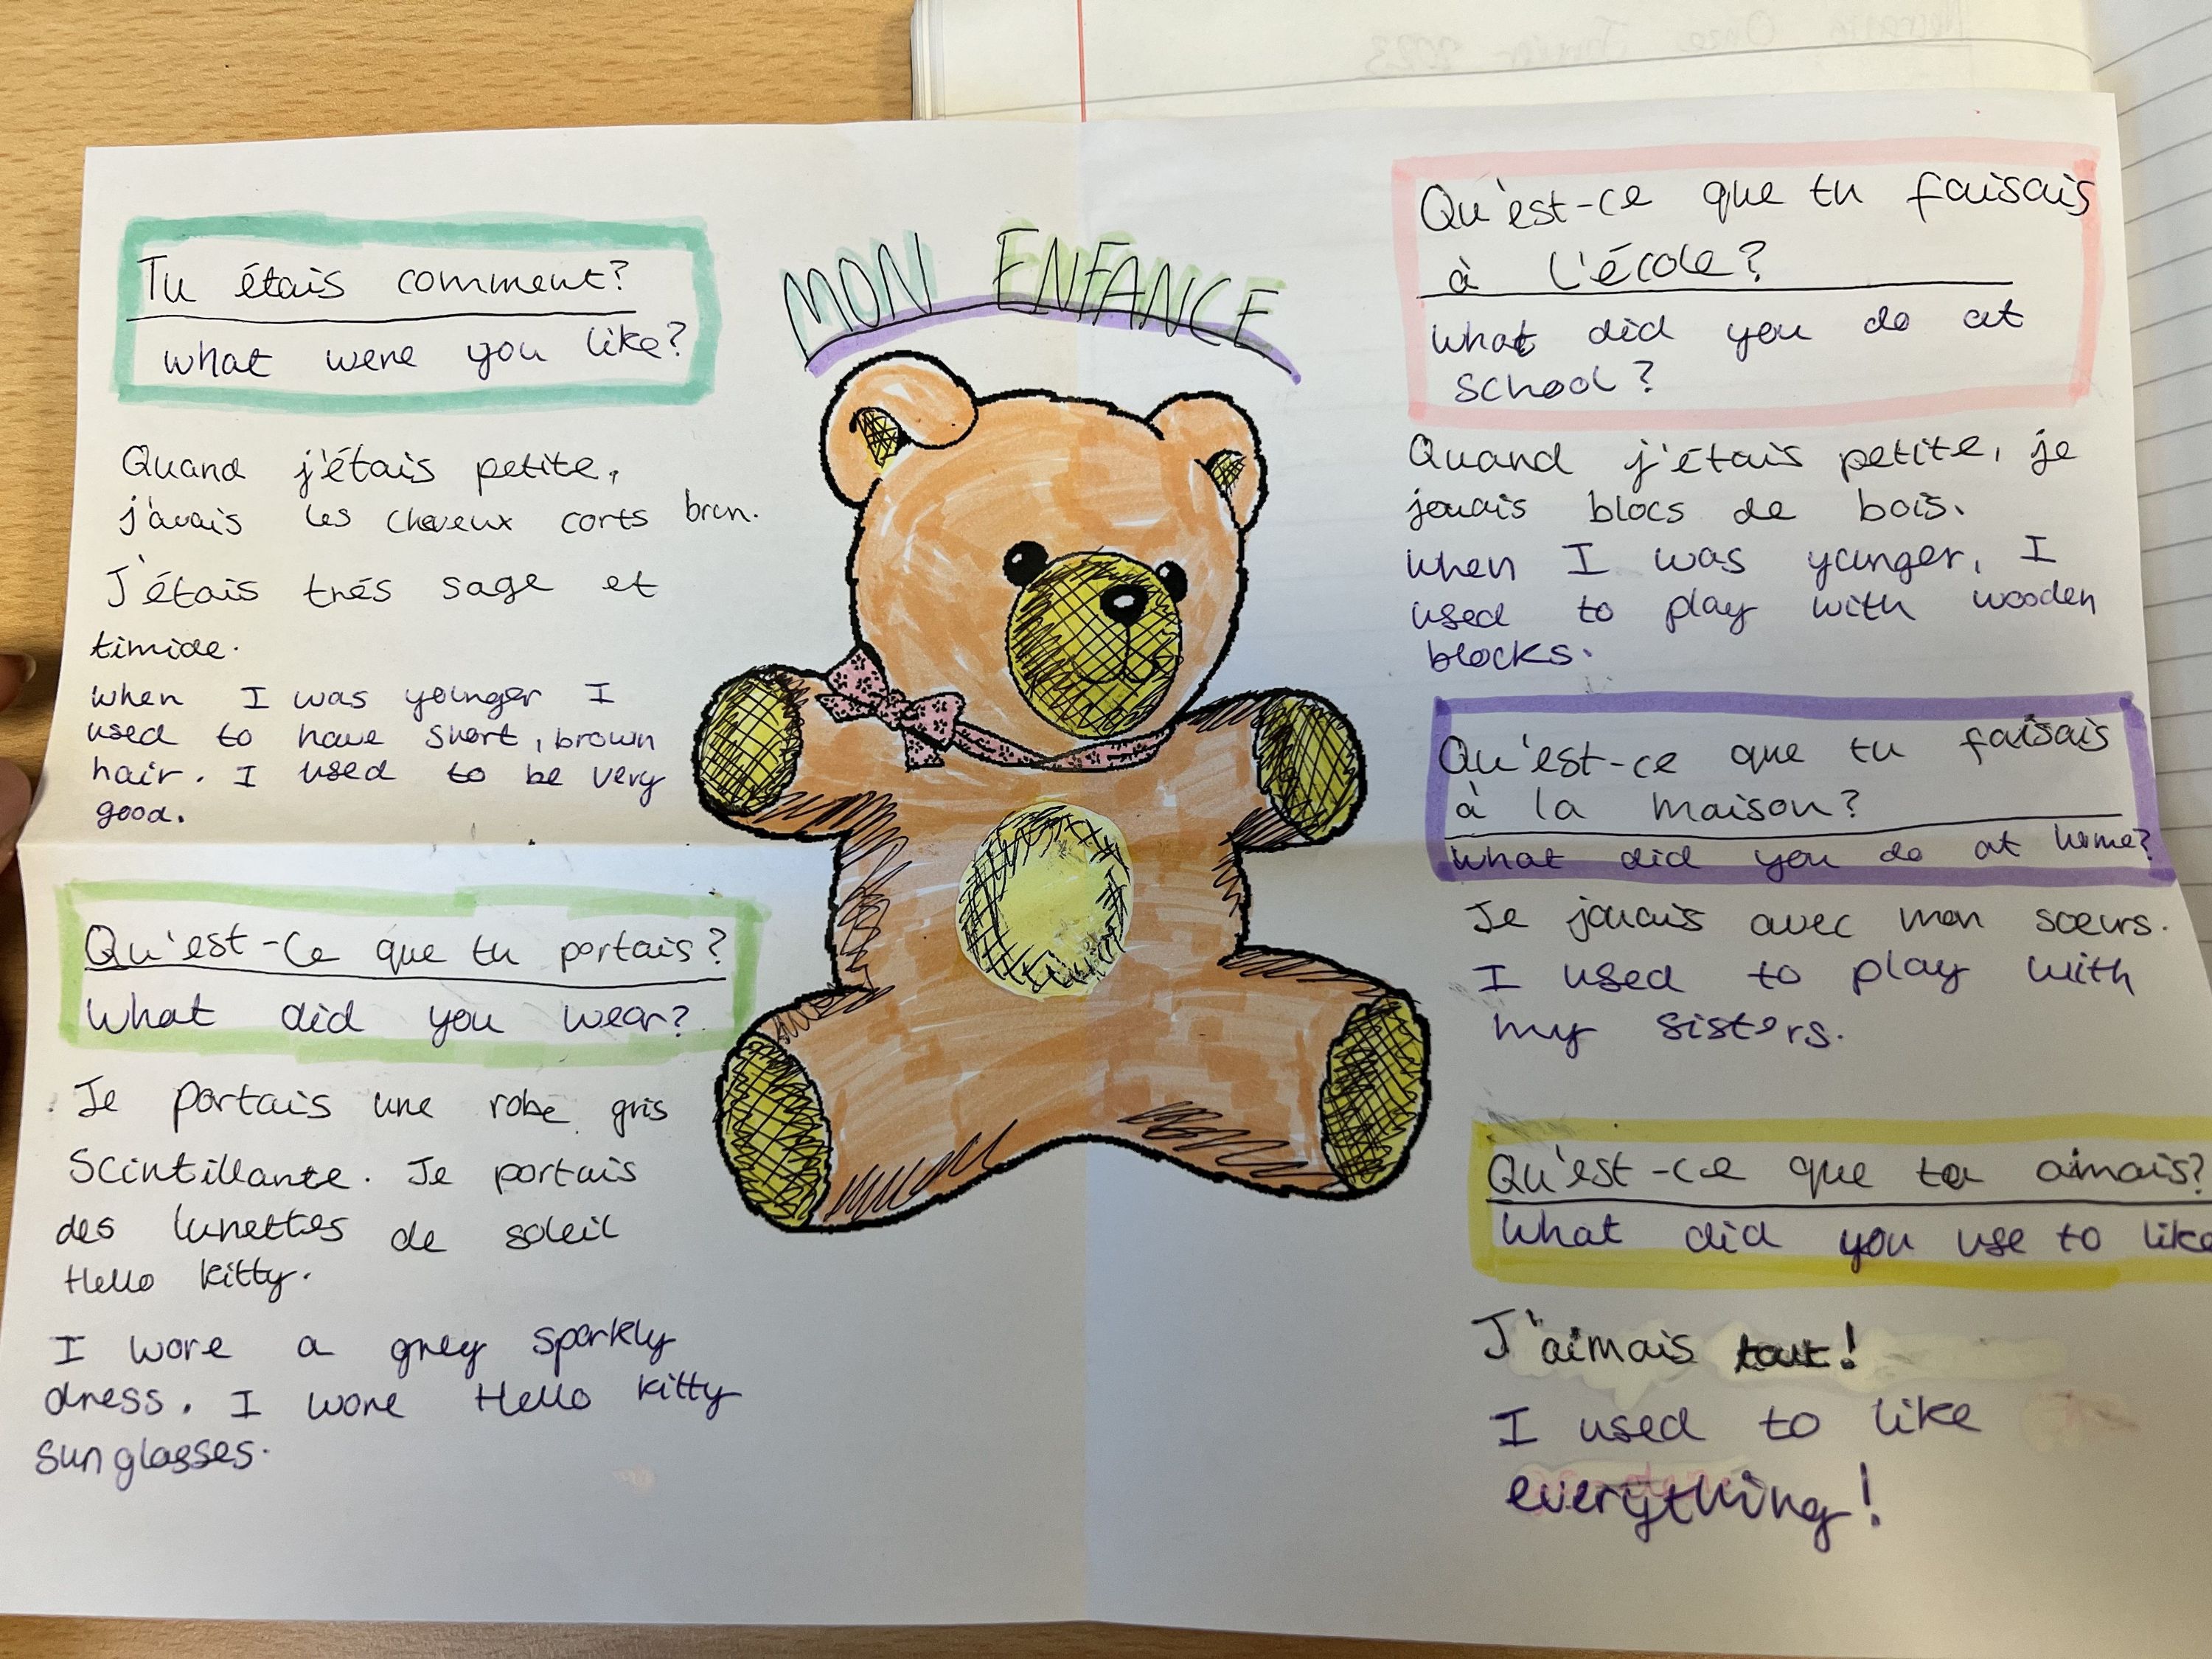 MON ENFANCE
Tu étais comment?
what were you like?
Quand j'étais petite,
j'avais les cheveux corts brun.
J'étais trés sage et
timide.
when I was younger I
used to have short, brown
hair. I used to be very
good.
Qu'est-ce que tu portais?
What did you wear?
Je portais une robe gris
Scintillante. Je portais
des lunettes de soleil
Hello kitty.
I wore a grey sparkly
dress. I wore Hello kitty
sunglasses.
Qu'est-ce que tu faisais
à l'école?
what did you do at
school?
Quand j'étais petite, je
jouais blocs de bois.
when I was younger, I
used to play with wooden
blocks.
Qu'est-ce que tu faisais
à la maison?
what did you do at home?
Je jouais avec mon soeurs.
I used to play with
my sisters.
Qu'est-ce que tu aimais?
What did you use to like
J'aimais tout!
I used to like
everything!